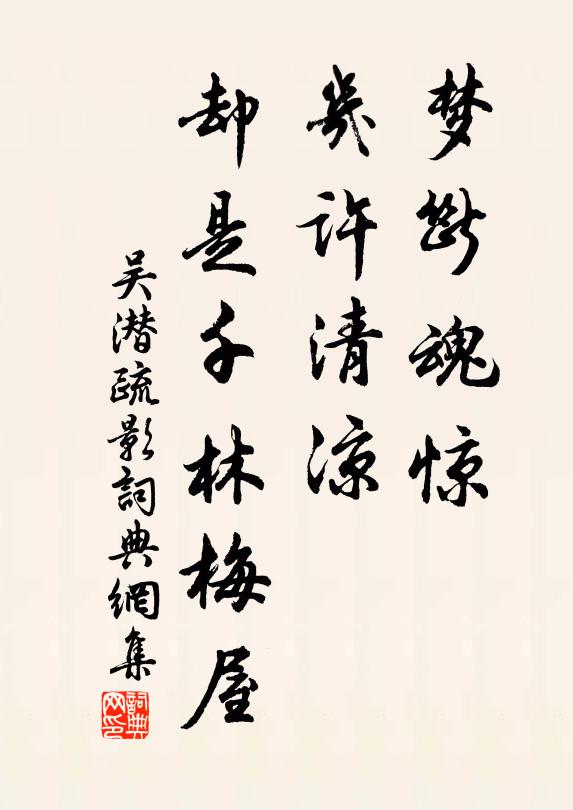 梦断魂惊
几许清凉
却是千林梅屋
吴潜疏影词典网集
词典网印